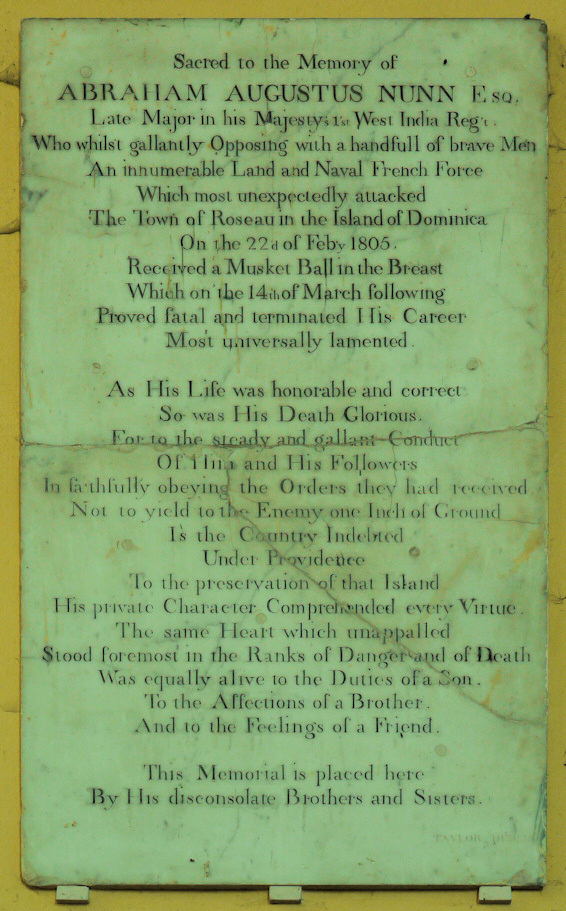 Sacred to the Memory of
ABRAHAM AUGUSTUS NUNN Esq.
Late Major in his Majesty's 1st West India Regt.
Who whilst gallantly Opposing with a handfull of brave Men
An innumerable Land and Naval French Force
Which most unexpectedly attacked
The Town of Roseau in the Island of Dominica
On the 22d of Feby 1805.
Received a Musket Ball in the Breast
Which on the 14th of March following
Proved fatal and terminated His Career
Most universally lamented.
As His Life was honorable and correct
So was His Death Glorious.
For to the steady and gallant Conduct
Of Him and His Followers
In faithfully obeying the Orders they had received
Not to yield to the Enemy one Inch of Ground
Is the Country Indebted
Under Providence
To the preservation of that Island
His private Character Comprehended every Virtue.
The same Heart which unappalled
Stood foremost in the Ranks of Danger and of Death
Was equally alive to the Duties of a Son.
To the Affections of a Brother.
And to the Feelings of a Friend.
This Memorial is placed here
By His disconsolate Brothers and Sisters.